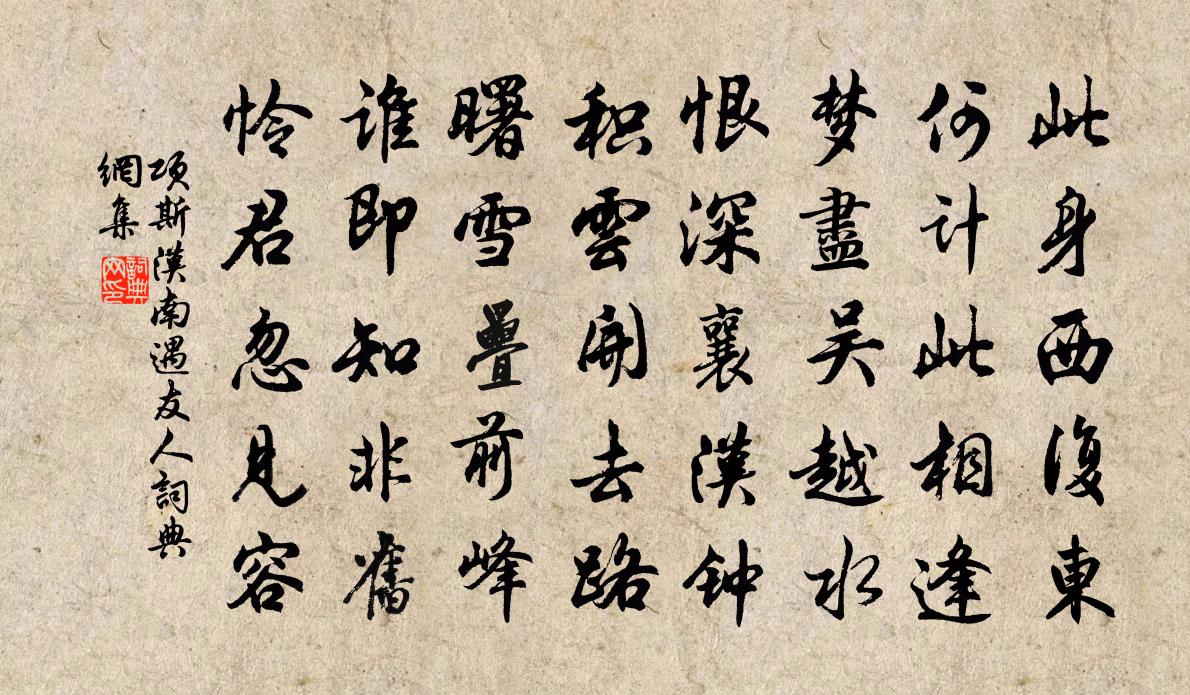 此身西復東
何计此相逢
梦盡吴越水
恨深襄漢钟
积雲開去路
曙雪疊前峰
谁即知非舊
怜君忽見容
项斯漢南遇友人詞典
網集
詞典
网印